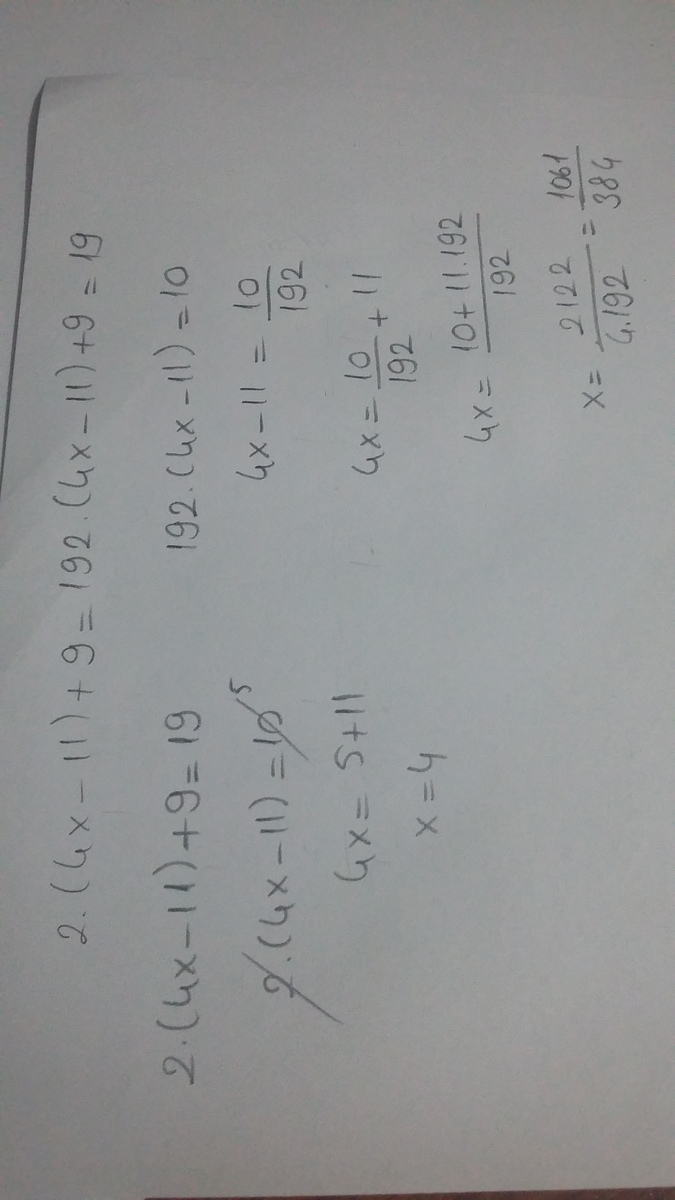 2.(4x-11)+9=192.(4x-11)+9=19
2.(4x-11)+9=19
2.(4x-11)=10 5
4x=5+11
x=4
192.(4x-11)=10
4x-11=10/192
4x=10/192+11
4x=10+11.192/192
x=2122/4.192=1061/384